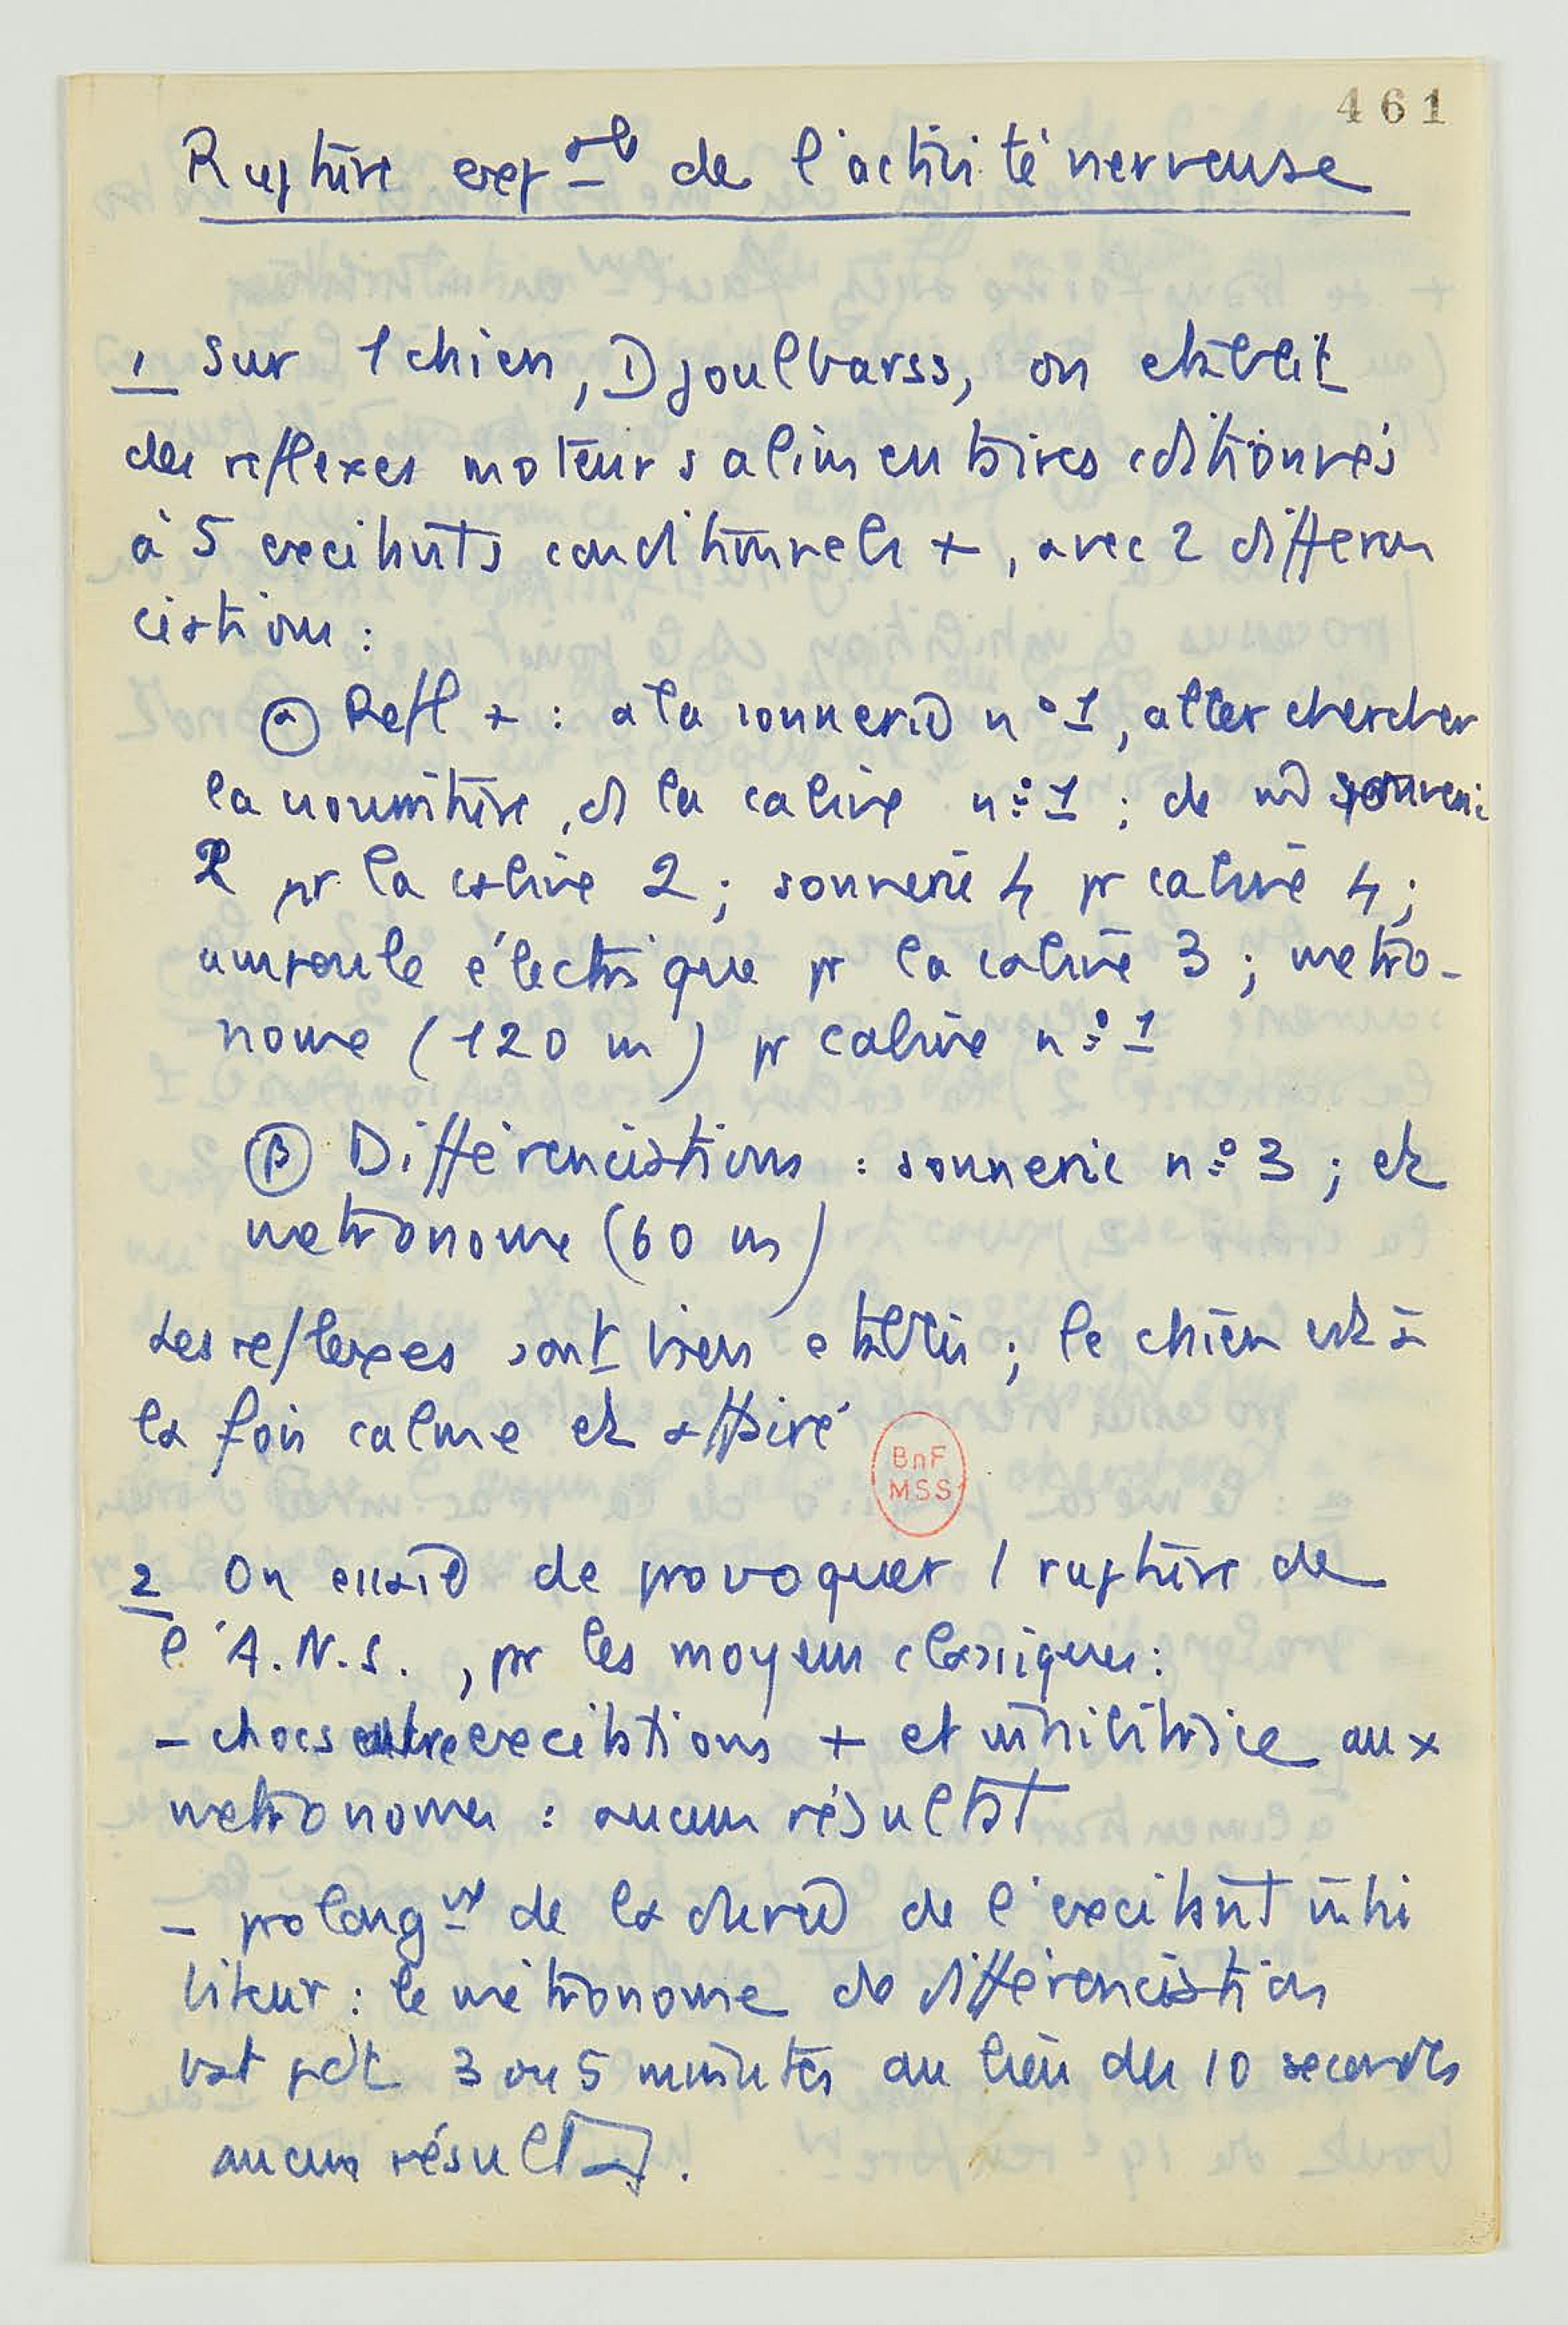 461
Rupture exp^ale de l'activité nerveuse
1 Sur 1 chien, Djoulbarss, on etablit
des reflexes moteurs alimentaires cditionnés
à 5 excitants conditionnels +, avec 2 differen
ciations :
(α) Refl + : a la sonnerie n° 1, aller chercher
la nourriture, ds la cabine n° 1 ; de m̂ sonnerie
2 pr la cabine 2 ; sonnerie 4 pr cabine 4 ;
ampoule électrique pr la cabine 3 ; metro-
nome (120 m) pr cabine n° 1
(β) Différenciations : sonnerie n° 3 ; et
metronome (60 m)
Les reflexes sont bien etablis ; le chien est à
la fois calme et affairé
BnF
MSS
2 On essaie de provoquer 1 rupture de
l'A.N.S., pr les moyens classiques :
- chocs entre excitations + et inhibitrice aux
metronomes : aucun résultat
- prolong^nt de la durée de l'excitant inhi
biteur : le métronome de différenciation
bat pdt 3 ou 5 minutes au lieu des 10 secondes
aucun résultat.